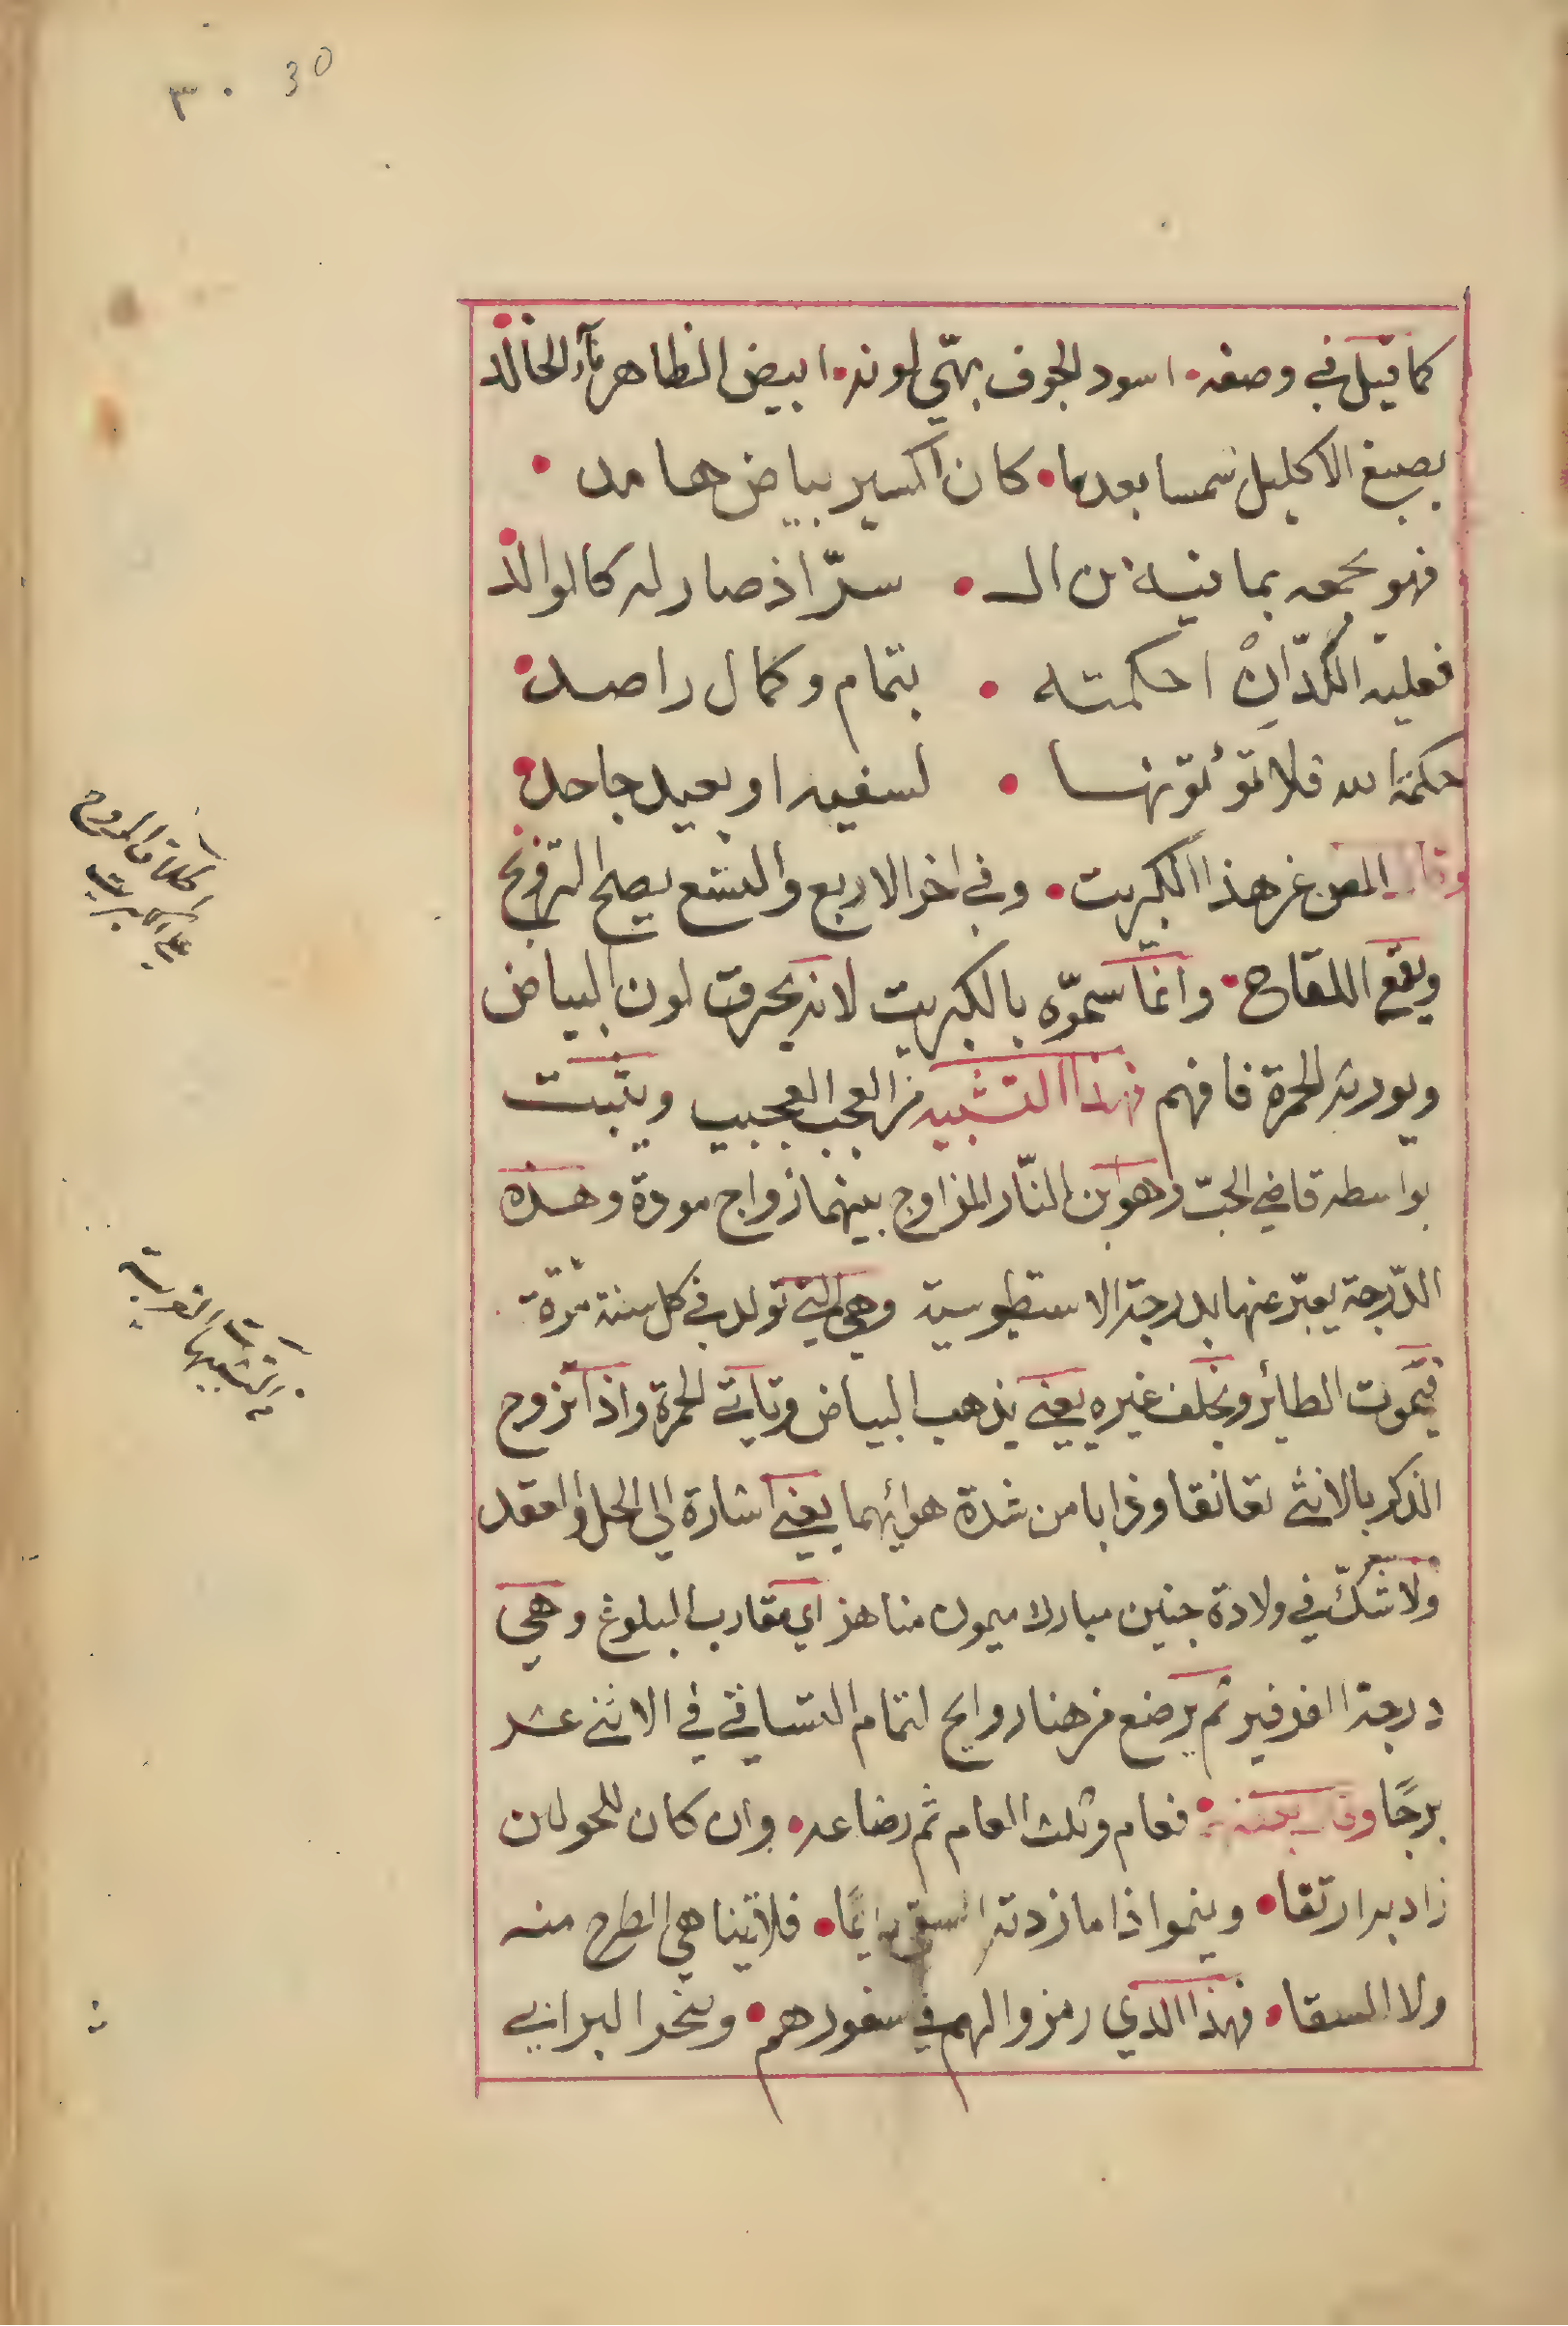 ٣٠ 30
كما قيل في وصفه • اسود الجوف بهيّ لونه • ابيض الظاهر مآء الخالد
يصبغ الاكليل شمسا بعدما • كان اكسير بياض هامد •
فهو يحمه بما فيه من ال • سرّ اذ صار له كالوالد
فعليه الكدّ ان احكمته • بتمام وكمال راصد
حكمة الله فلا تؤتوّنها • لسفيه او بعيد جاحد
وقال المص عن هذا الكبريت • وفي اخر الاربع والتسع يصلح التزويج
ويقع اللقاح • وانما سموّه بالكبريت لانه يحرق لون البياض
ويورثه الحمرة فافهم فهذا التشبيه من العجب العجيب ويثبت
بواسطه قاضي الحبّ وهو ابن النّار المزاوج بينهما زواج مودة وهذه
الدّرجة يعبّر عنها بدرجة الاسقطوسية وهي التي تولد في كل سنة مرّة
فيموت الطائر ويخلف غيره يعني يذهب البياض وتاتي الحمرة واذا تزوج
الذكر بالانثى تعانقا وذابا من شدة هوائهما يعني اشارة الى الحل والعقد
ولا شكّ في ولادة جنين مبارك ميمون مناهز اي مقارب البلوغ وهي
درجة الفرفير ثم يرضع من هنا روايح لتمام التساقي في الاثني عشر
برجًا وقال بعضهم • فعام وثلث العام ثم رضاعه • وان كان للحولين
زاد به ارتقا • وينمو اذا ما زدته السقي دايمًا • فلا يتناهى الطرح منه
ولا السقا • فهذا الذي رمزوا لهم في سفورهم • وينحر البراني
الكلام المروح
على الكبريت
التشبيهات الغريبة